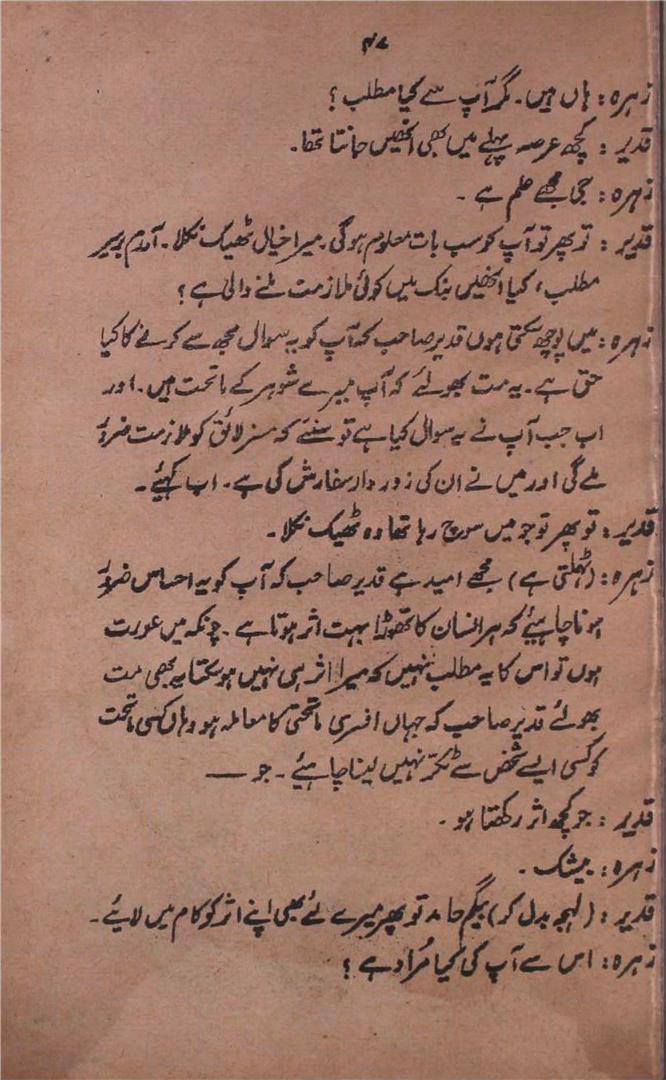 ۴۷
زہرہ: ہاں ہیں۔ مگر آپ سے کیا مطلب؟
قدیر: کچھ عرصہ پہلے میں بھی انھیں جانتا تھا۔
زہرہ: جی مجھے علم ہے۔
قدیر: تو پھر تو آپ کو سب بات معلوم ہوگی۔ میرا خیال ٹھیک نکلا۔ آمدم برسر
مطلب، کیا انھیں بنک میں کوئی ملازمت ملنے والی ہے؟
زہرہ: میں پوچھ سکتی ہوں قدیر صاحب کہ آپ کو یہ سوال مجھ سے کرنے کا کیا
حق ہے۔ یہ مت بھولئے کہ آپ میرے شوہر کے ماتحت ہیں۔ اور
اب جب آپ نے یہ سوال کیا ہے تو سنئے کہ مسز لائق کو ملازمت ضرور
ملے گی اور میں نے ان کی زور دار سفارش کی ہے۔ اب کہیئے۔
قدیر: تو پھر تو جو میں سوچ رہا تھا وہ ٹھیک نکلا۔
زہرہ: (ٹہلتی ہے) مجھے امید ہے قدیر صاحب کہ آپ کو یہ احساس ضرور
ہونا چاہیئے کہ ہر انسان کا تھوڑا بہت اثر ہوتا ہے۔ چونکہ میں عورت
ہوں تو اس کا یہ مطلب نہیں کہ میرا اثر ہی نہیں ہو سکتا یہ بھی مت
بھولئے قدیر صاحب کہ جہاں افسری ماتحتی کا معاملہ ہو وہاں کسی ماتحت
کو کسی ایسے شخص سے ٹکر نہیں لینا چاہیئے۔ جو ——
قدیر: جو کچھ اثر رکھتا ہو۔
زہرہ: بیشک۔
قدیر: (لہجہ بدل کر) بیگم حامد تو پھر میرے لئے بھی اپنے اثر کو کام میں لائیے۔
زہرہ: اس سے آپ کی کیا مُراد ہے؟